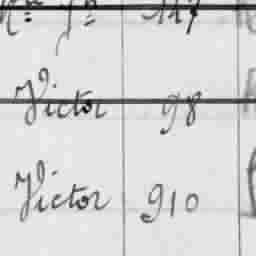 Victor 98
Victor 910